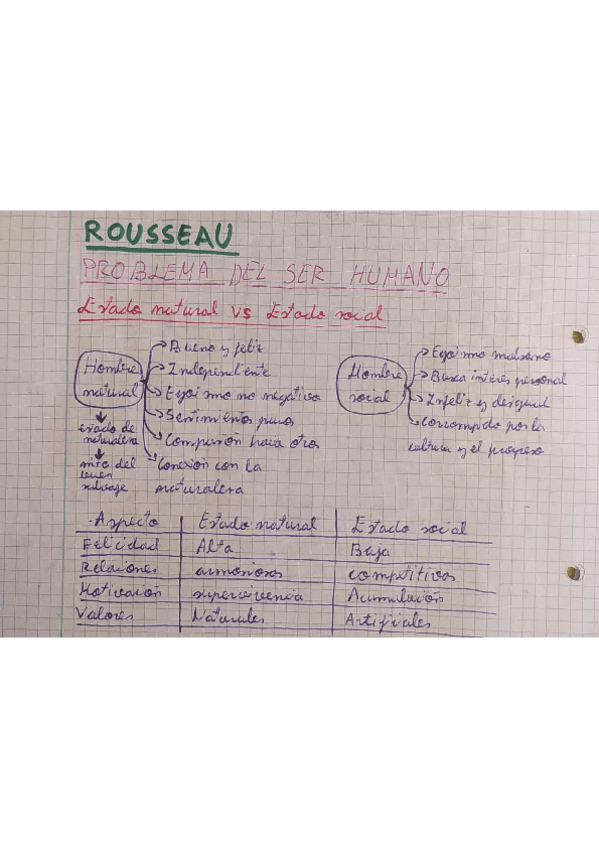 ROUSSEAU
PROBLEMA DEL SER HUMANO
Estado natural vs Estado social
Hombre natural
Bueno y feliz
Independiente
Egoísmo no negativo
Sentimientos puros
Compasión hacia otros
Conexión con la
naturaleza
estado de
naturaleza
mito del
buen
salvaje
Hombre social
Egoísmo malsano
Busca interés personal
Infeliz y desigual
Corrompido por la
cultura y el progreso
Aspecto Estado natural Estado social
Felicidad Alta Baja
Relaciones armoniosas competitivas
Motivación supervivencia Acumulación
Valores Naturales Artificiales